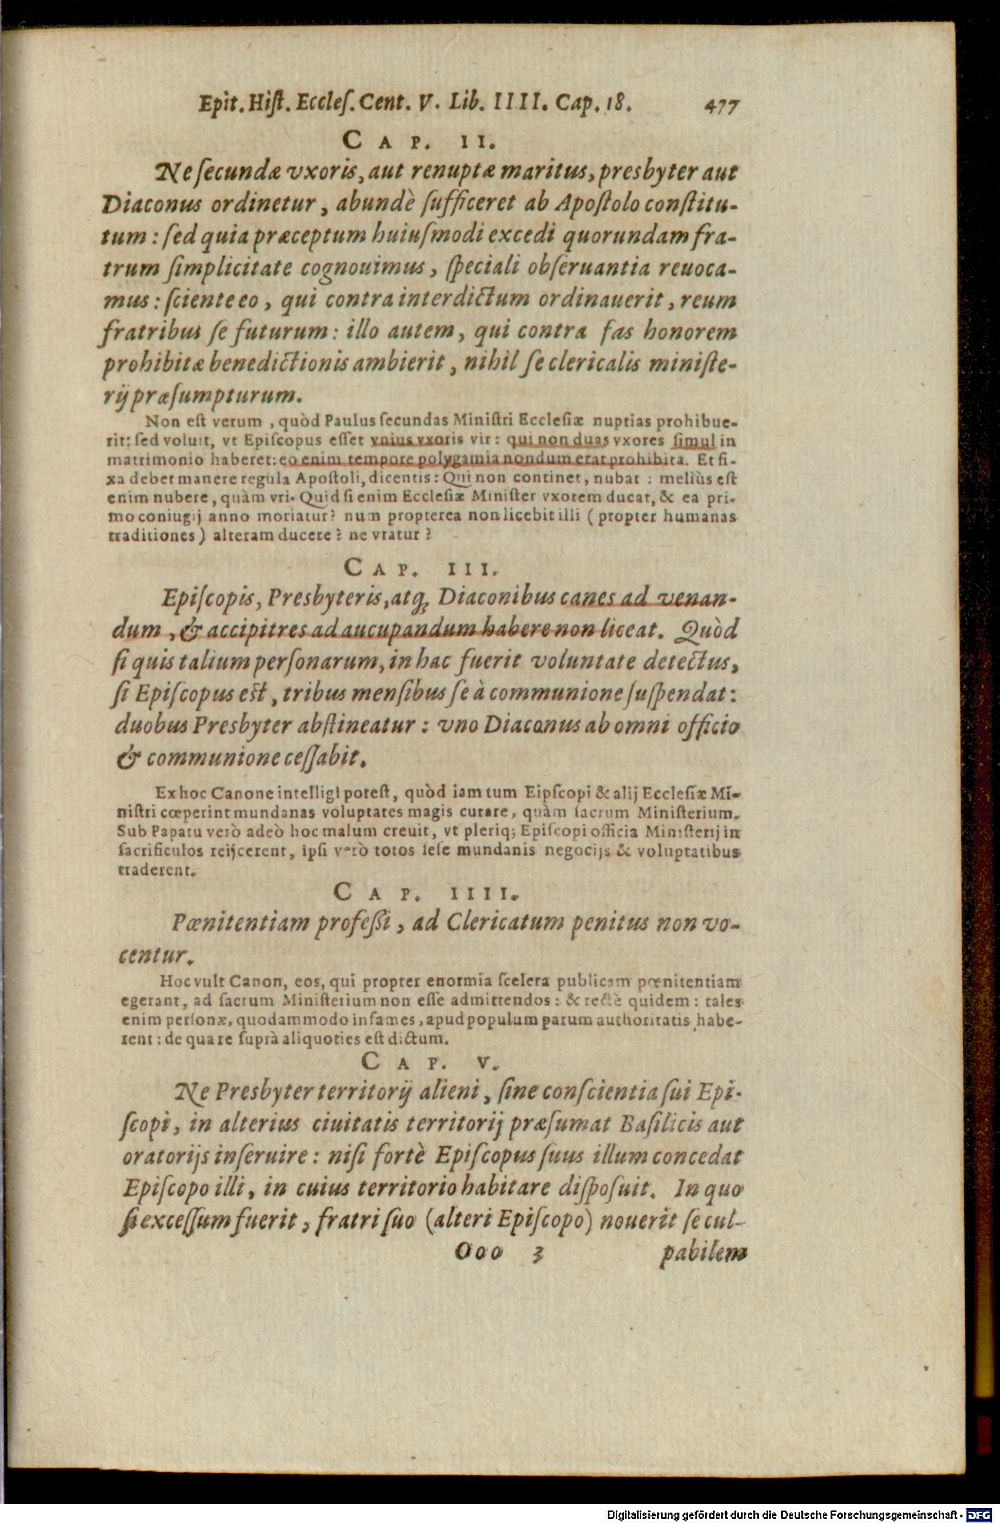 Epit. Hiſt. Eccleſ. Cent. V. Lib. IIII. Cap. 18. 477
CAP. II.
Ne ſecundæ vxoris, aut renuptæ maritus, presbyter aut
Diaconus ordinetur, abundè ſufficeret ab Apoſtolo conſtitu-
tum: ſed quia præceptum huiuſmodi excedi quorundam fra-
trum ſimplicitate cognouimus, ſpeciali obſeruantia reuoca-
mus: ſciente eo, qui contra interdictum ordinauerit, reum
fratribus ſe futurum: illo autem, qui contra fas honorem
prohibitæ benedictionis ambierit, nihil ſe clericalis miniſte-
rij præſumpturum.
Non eſt verum, quòd Paulus ſecundas Miniſtri Eccleſiæ nuptias prohibue-
rit: ſed voluit, vt Epiſcopus eſſet vnius vxoris vir: qui non duas vxores ſimul in
matrimonio haberet: eo enim tempore polygamia nondum erat prohibita. Et fi-
xa debet manere regula Apoſtoli, dicentis: Qui non continet, nubat: meliùs eſt
enim nubere, quàm vri. Quid ſi enim Eccleſiæ Miniſter vxorem ducat, & ea pri-
mo coniugij anno moriatur? num propterea non licebit illi (propter humanas
traditiones) alteram ducere? ne vratur?
CAP. III.
Epiſcopis, Presbyteris, atq; Diaconibus canes ad venan-
dum, & accipitres ad aucupandum habere non liceat. Quòd
ſi quis talium perſonarum, in hac fuerit voluntate detectus,
ſi Epiſcopus eſt, tribus menſibus ſe à communione ſuſpendat:
duobus Presbyter abſtineatur: vno Diaconus ab omni officio
& communione ceſſabit.
Ex hoc Canone intelligi poteſt, quòd iam tum Eipſcopi & alij Eccleſiæ Mi-
niſtri cœperint mundanas voluptates magis curare, quàm ſacrum Miniſterium.
Sub Papatu verò adeò hoc malum creuit, vt pleriq; Epiſcopi officia Miniſterij in
ſacrificulos reijcerent, ipſi verò totos ſeſe mundanis negocijs & voluptatibus
traderent.
CAP. IIII.
Pœnitentiam profeſſi, ad Clericatum penitus non vo-
centur.
Hoc vult Canon, eos, qui propter enormia ſcelera publicam pœnitentiam
egerant, ad ſacrum Miniſterium non eſſe admittendos: & rectè quidem: tales
enim perſonæ, quodammodo infames, apud populum parum authoritatis habe-
rent: de qua re ſuprà aliquoties eſt dictum.
CAP. V.
Ne Presbyter territorij alieni, ſine conſcientia ſui Epi-
ſcopi, in alterius ciuitatis territorij præſumat Baſilicis aut
oratorijs inſeruire: niſi fortè Epiſcopus ſuus illum concedat
Epiſcopo illi, in cuius territorio habitare diſpoſuit. In quo
ſi exceſſum fuerit, fratri ſuo (alteri Epiſcopo) nouerit ſe cul-
Ooo 3 pabilem
Digitalisierung gefördert durch die Deutsche Forschungsgemeinschaft - DFG